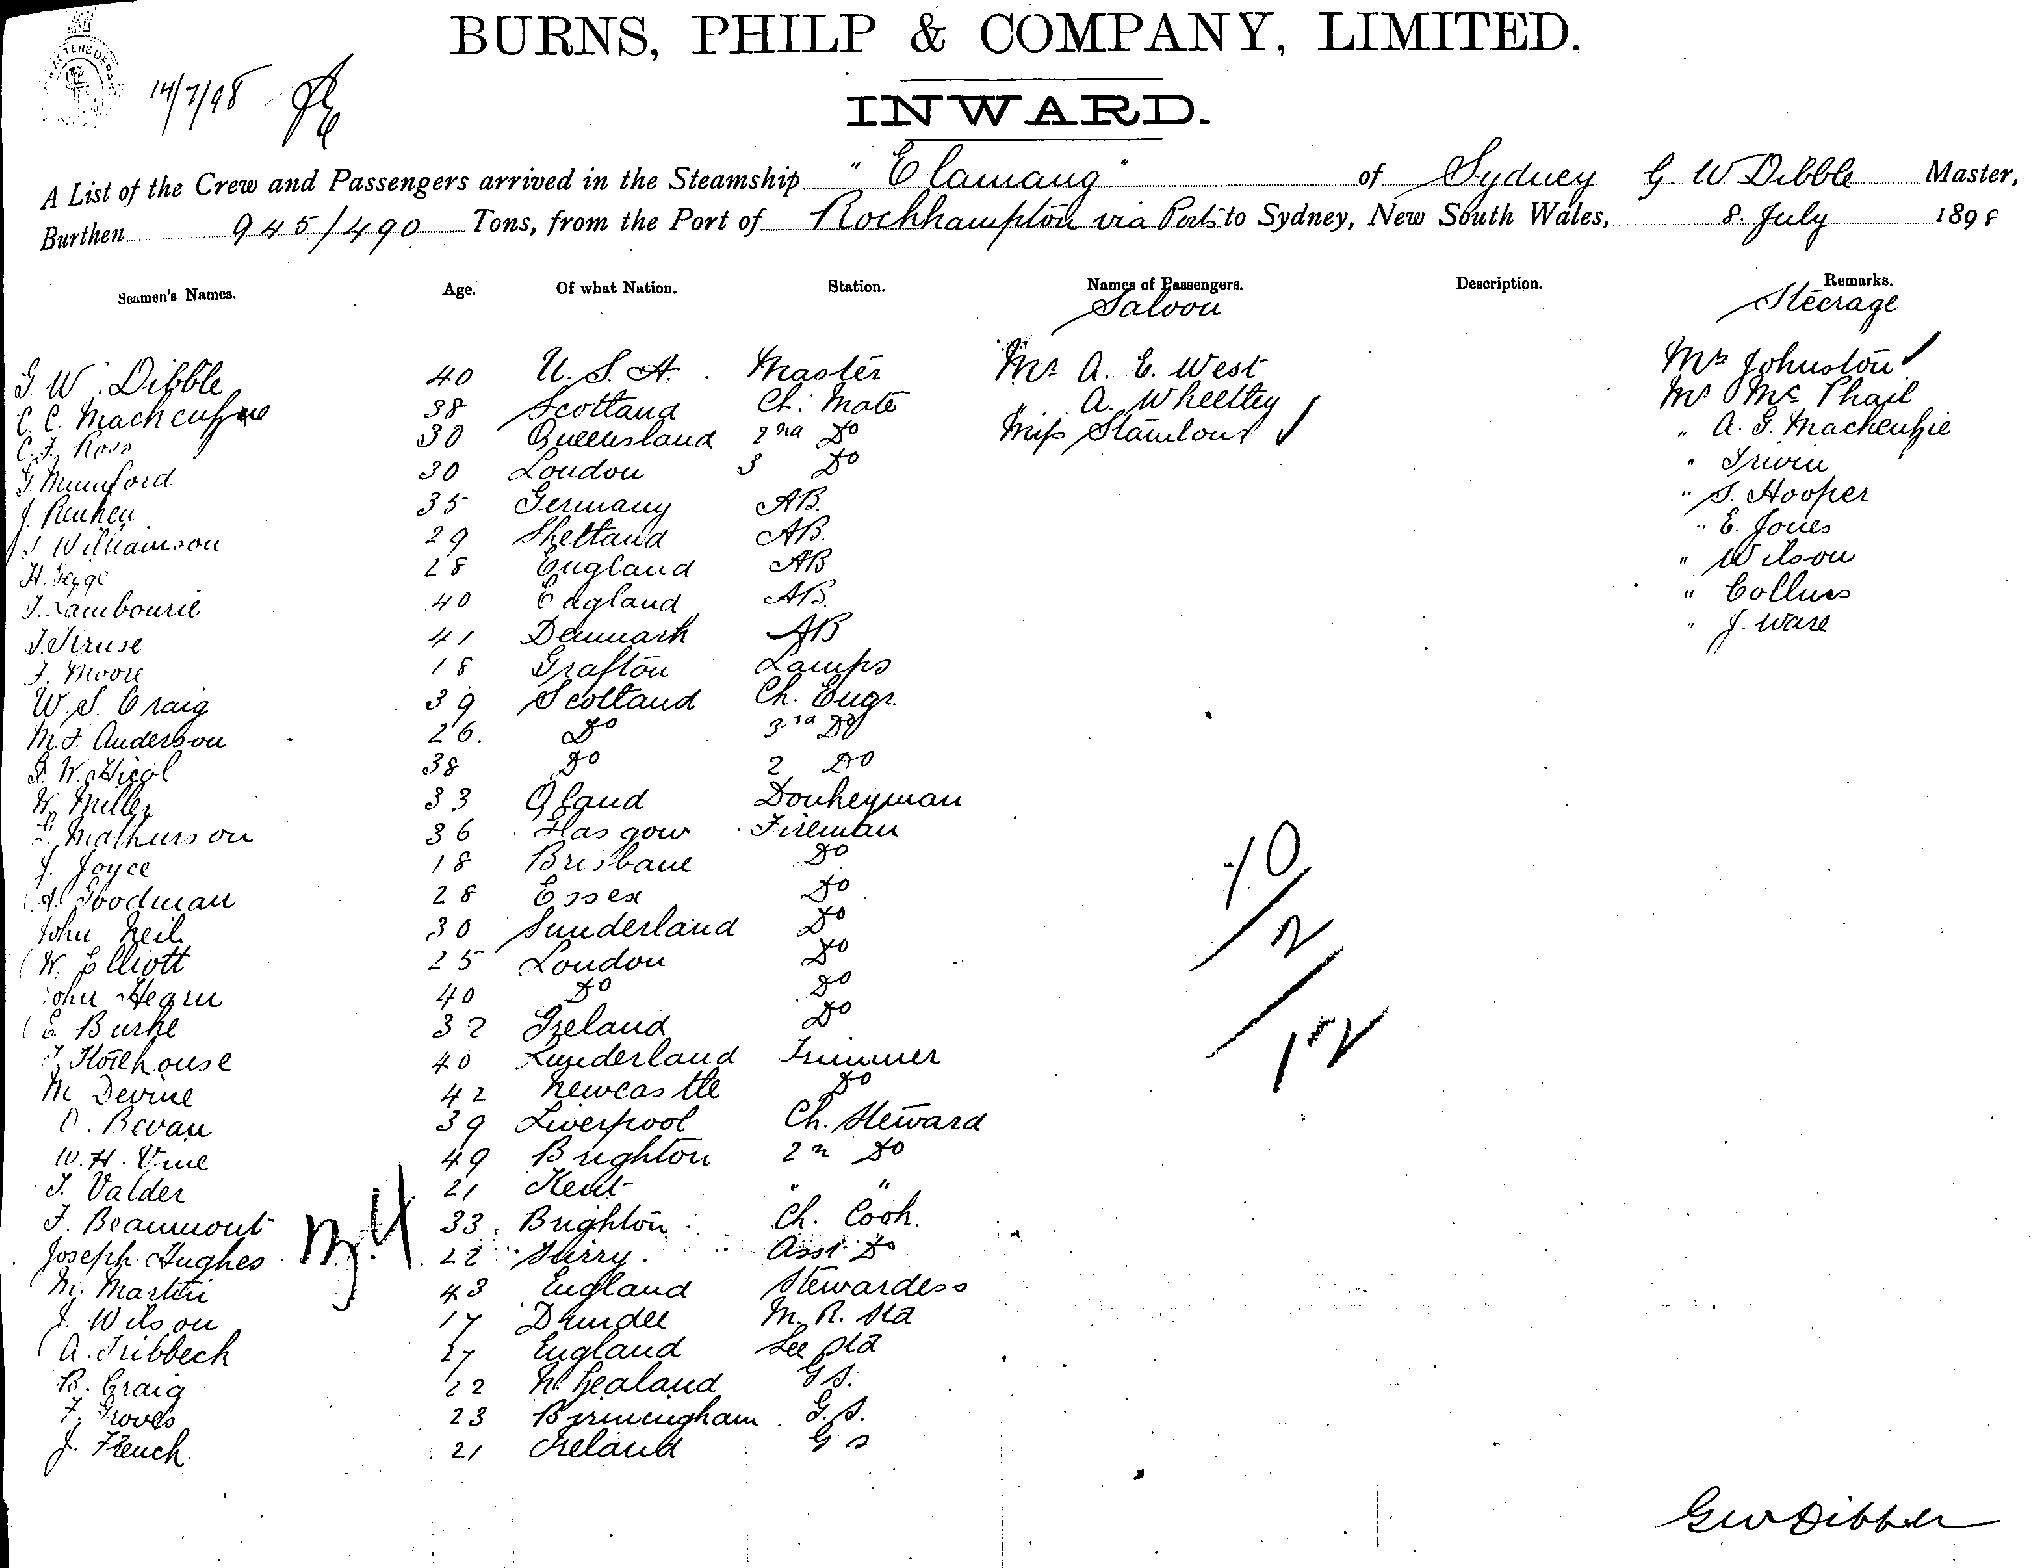 BURNS, PHILP & COMPANY, LIMITED.
14/7/98
INWARD.
A List of the Crew and Passengers arrived in the Steamship "Elamang" of Sydney G W Dibble Master,
Burthen 945/490 Tons, from the Port of Rockhampton via Ports to Sydney, New South Wales, 8. July 1898
Seamen's Names. Age. Of what Nation. Station. Names of Passengers. Description. Remarks.
Saloon Steerage
G W. Dibble 40 U. S. A. Master Mr A. E. West Mrs Johnston
C. C. Mackenzie 38 Scotland Ch. Mate " A. Wheatley Mr Mc Phail
C. F. Ross 30 Queensland 2nd Do Miss " A. G. Mackenzie
G. Mumford 30 London 3 Do " Irwin
J. 35 Germany AB. " S. Hooper
J Williamson 29 Shetland AB. " E. Jones
H. 28 England AB " Wilson
J. Lambourie 40 England AB. " Collins
J. Kruse 41 Denmark AB " J. Ware
F. Moore 18 Grafton Lamps
W. S. Craig 39 Scotland Ch. Engr.
M. F. Anderson 26. Do 3rd Do
G. W. 38 Do 2 Do
W. Miller 33 Qland Donkeyman
Mathieson 36 Glasgow Fireman
J. Joyce 18 Brisbane Do
A. Goodman 28 Essex Do
John Neil 30 Sunderland Do
W. Elliott 25 London Do
John Hearn 40 Do Do
E Burke 32 Ireland Do
J. 40 Sunderland Trimmer
M Devine 42 Newcastle Do
D. Bevan 39 Liverpool Ch. Steward
W. H. Vine 49 Brighton 2n Do
F. Valder 21 Kent " "
F. Beaumont 33. Brighton Ch. Cook.
Joseph Hughes 22 Surry. Asst Do
M. Martin 43 England Stewardess
J. Wilson 17 Dundee M. R. Std
A. Tribbeck 27 England Sec Std
B. Craig 22 N. Zealand G S.
F. Groves 23 Birmingham G. S.
J. French 21 Ireland G S
10
2
12
34
GW Dibble